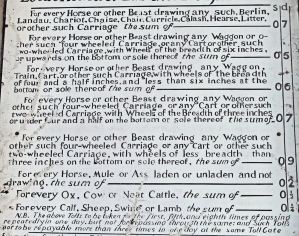 s. d.
For every Horse or other Beast drawing any such, Berlin,
Landau, Chariot, Chaise, Chair, Curricle, Calash, Hearse, Litter,
or other such Carriage the sum of 0 7
For every Horse or other Beast drawing any Waggon or o-
ther such four wheeled Carriage, or any Cart or other such
two-wheeled Carriage, with Wheels of the breadth of six inches
or upwards on the bottom or sole thereof the sum of 0 5
For every Horse or other Beast drawing any Waggon,
Train, Cart, or other such Carriage, with wheels of the breadth
of four and a half inches, and less than six inches at the
bottom or sole thereof the sum of 0 6
For every Horse or other Beast drawing any Waggon or
other such four-wheeled Carriage or any Cart or other such
two wheeled Carriage with Wheels of the Breadth of three inches
or under four and a half on the bottom or sole thereof the sum of 0 7
For every Horse or other Beast drawing any Waggon or
other such four-wheeled Carriage, or any Cart or other such
two-wheeled Carriage, with wheels of less breadth than
three inches on the bottom or sole thereof, the sum of 0 9
For every Horse, Mule or Ass laden or unladen and not
drawing, the sum of 0 2
For every Ox, Cow or Neat Cattle, the sum of 0 1
For every Calf, Sheep, Swine or Lamb the sum of 0 0½
N.B. The above Tolls to be taken on the first, fifth, and eighth times of passing
repeatedly in one day, but not for repassing through the same; and such Tolls
not to be repayable more than three times in one day at the same Toll Gate